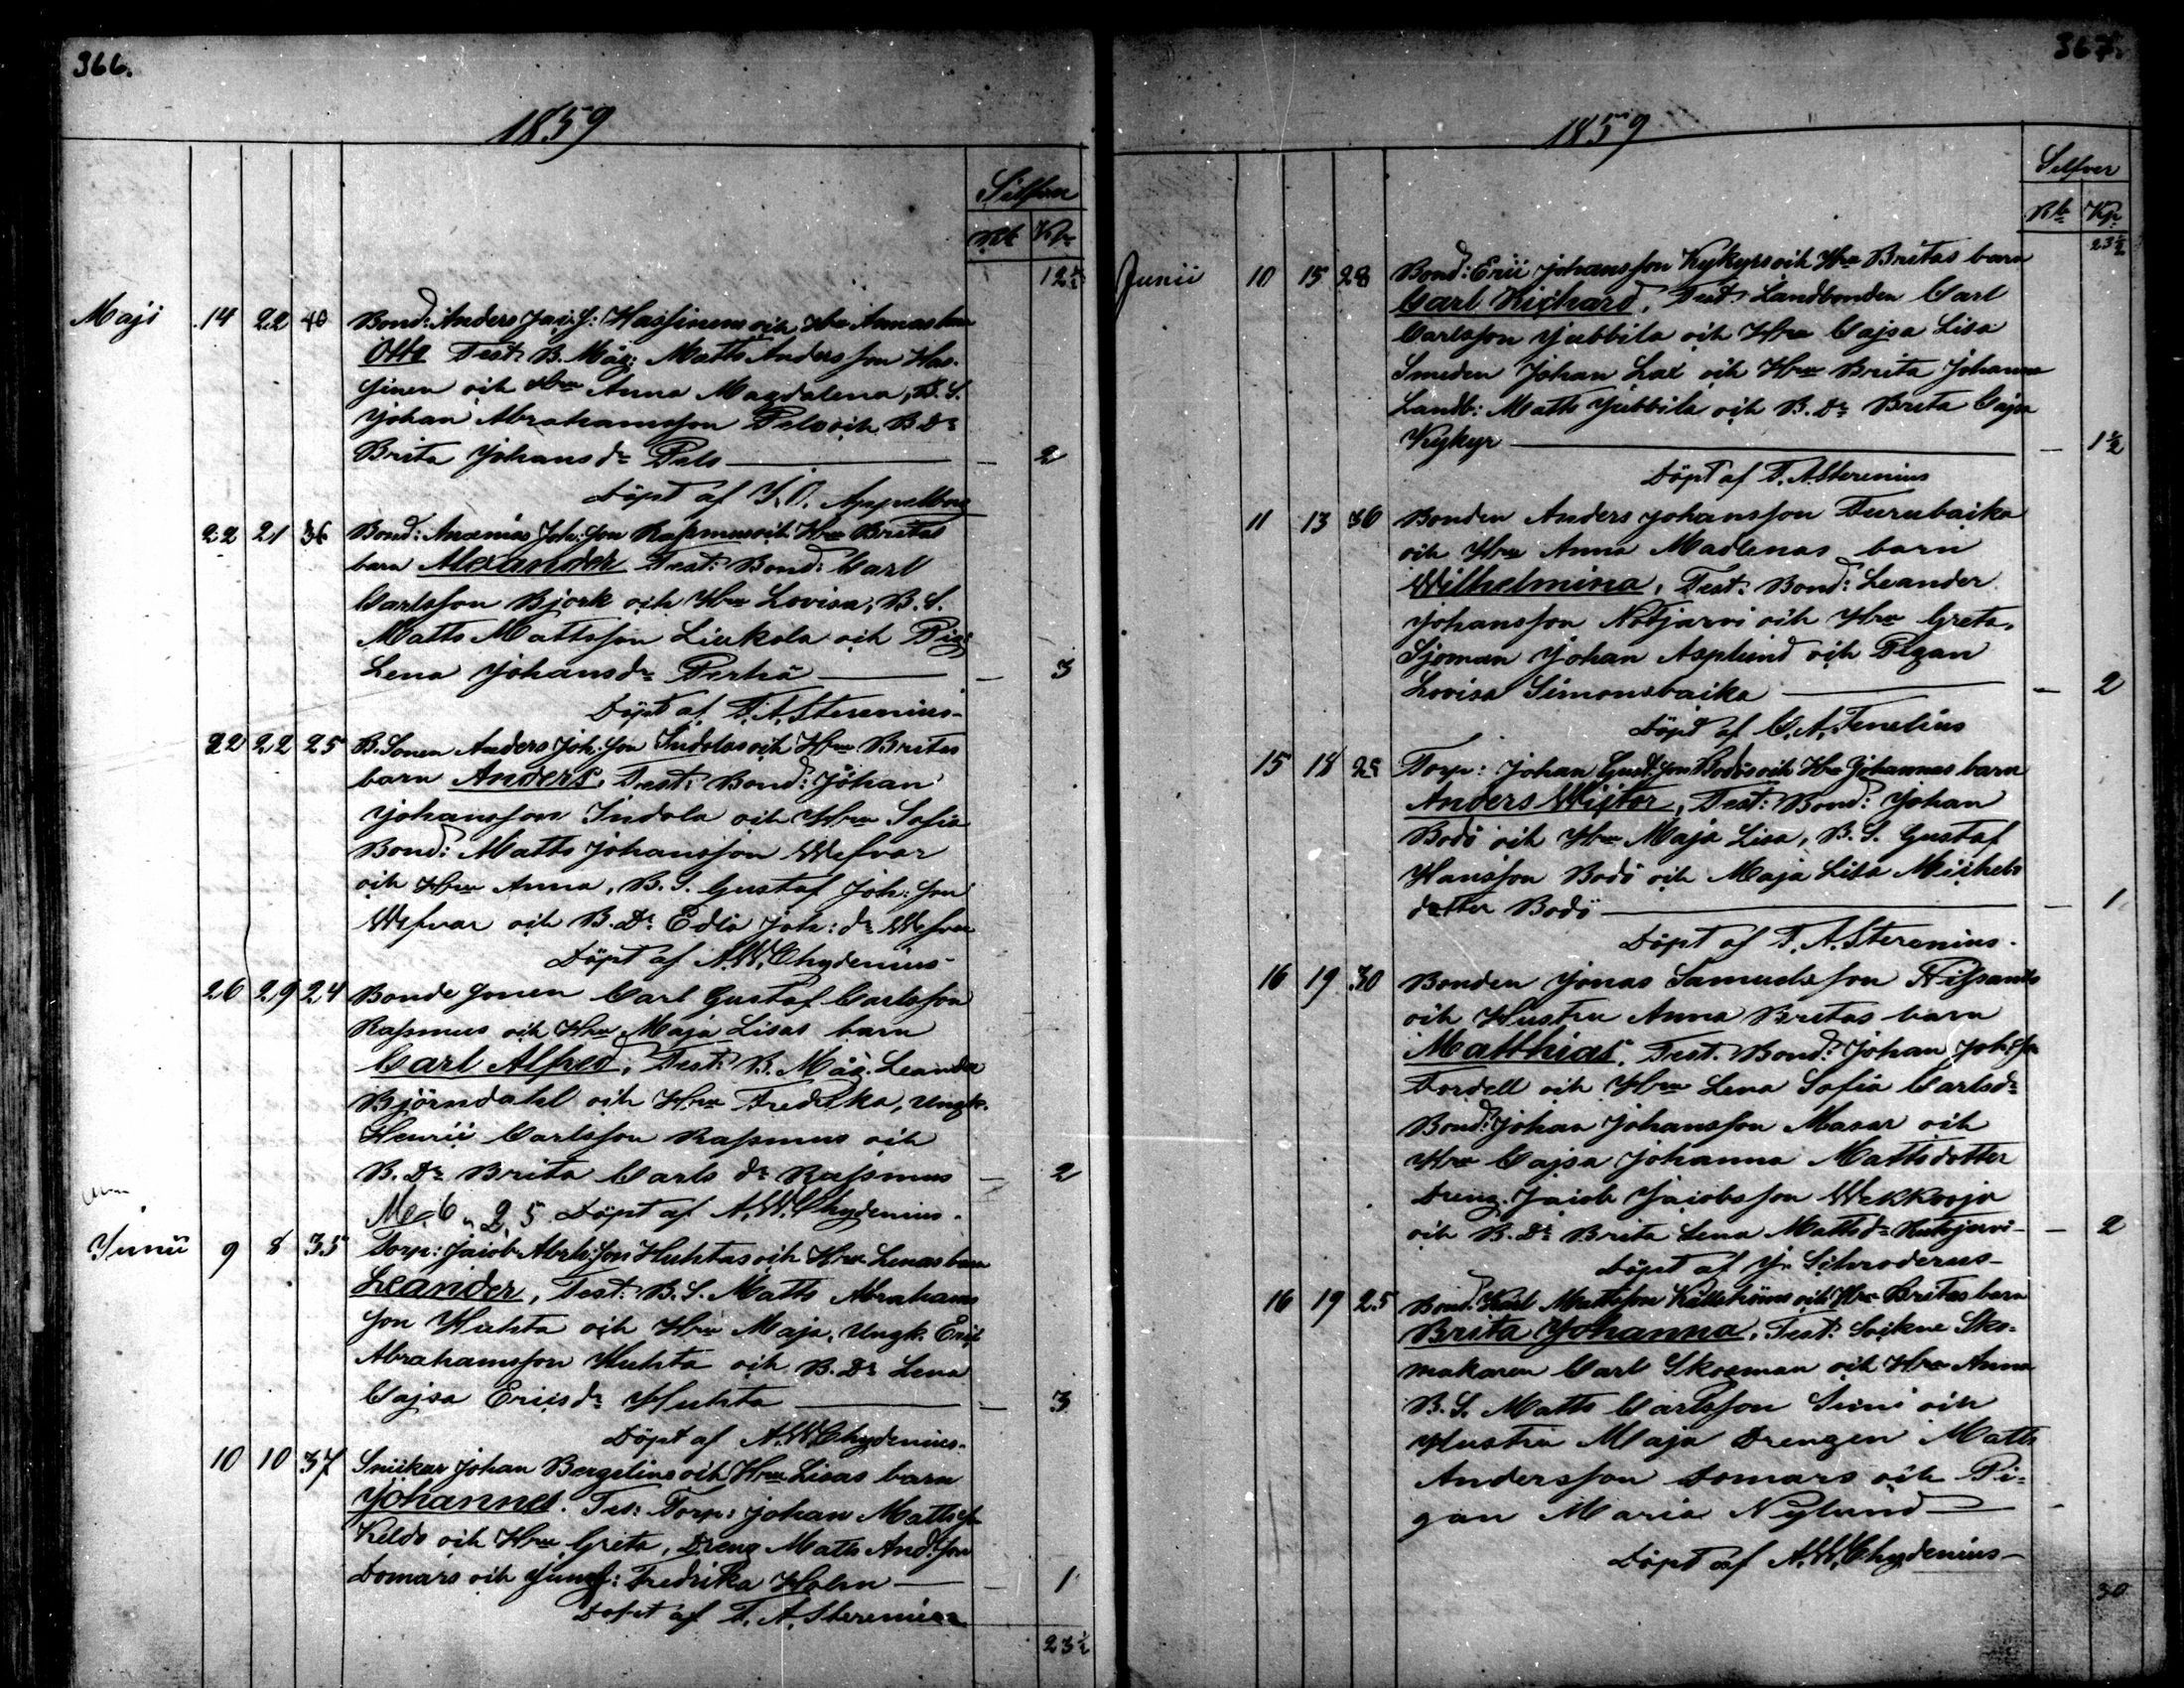 366.
1859
Silfver
Rbl Kp
12½
Maji 14 22 40 Bond: Anders Jac: S: Hassinens och Hru Annas barn
Otto Test: B. Måg: Matts Andersson Has-
sinen och Hru Anna Magdalena, B. S.
Johan Abrahamsson Pelo och B. Dr
Brita Johansdr Pelo — 2
Döpt af J. O. Appelberg
22 21 36 Bond: Ananias Joh: son Rasmus och Hru Britas
barn Alexander Test: Bond: Carl
Carlsson Björk och Hru Lovisa, B. S.
Matts Mattsson Liukola och Pig:
Lena Johansdr Perhö — 3
Döpt af T. A. Sterenius.
22 22 25 B. Sonen Anders Joh: son Indolas och Hru Britas
barn Anders, Test: Bond: Johan
Johansson Indola och Hru Sofia
Bond: Matts Johansson Wefvar
och Hru Anna, B. S. Gustaf Joh: son
Wefvar och B. Dr Edla Joh: dr Wefvar
Döpt af A. W. Chydenius
26 29 24 Bonde sonen Carl Gustaf Carlsson
Rasmus och Hru Maja Lisas barn
Carl Alfred, Test: B. Måg. Leander
Björndahl och Hru Fredrika, Ungk.
Henric Carlsson Rasmus och
B. Dr Brita Carls dr Rasmus — 2
M. 6 Q. 5 Döpt af A. W. Chydenius.
Junii 9 8 35 Torp: Jacob Abrh: son Huhtas och Hru Lenas barn
Leander, Test: B. S. Matts Abrahams
son Huhta och Hru Maja, Ungk. Eric
Abrahamsson Huhta och B. Dr Lena
Cajsa Ericsdr Huhta — 3
Döpt af A. W. Chydenius.
10 10 37 Snickar Johan Bergelins och Hru Lisas barn
Johannes. Tes: Torp: Johan Mattsson
Keldo och Hru Greta, Dreng Matts And: son
Domars och Jungf: Fredrika Holm — 1
Döpt af T. A. Sterenius
23½
367.
1859
Silfver
Rbl Kp
23½
Junii 10 15 28 Bond: Eric Johansson Kykyrs och Hru Britas barn
Carl Richard, Test: Landbonden Carl
Carlsson Jubbila och Hru Cajsa Lisa
Smeden Johan Lax och Hru Brita Johanna
Landb: Matts Jubbila och B. Dr Brita Cajsa
Kykyr — 1½
Döpt af T. A. Sterenius
11 13 36 Bonden Anders Johansson Furubacka
och Hru Anna Madlenas barn
Wilhelmina, Test: Bond: Leander
Johansson Nötjärvi och Hru Greta,
Sjöman Johan Asplund och Pigan
Lovisa Simonsbacka — 2
Döpt af C. A. Fenelius
15 18 Torp: Johan Gust: son Bodös och Hru Johannas barn
Anders Wictor, Test: Bond: Johan
Bodö och Hru Maja Lisa, B. S. Gustaf
Hansson Bodö och Maja Lisa Michels
dotter Bodö — 1
Döpt af T. A. Sterenius.
16 19 30 Bonden Jonas Samuelsson
och Hustru Anna Britas barn
Matthias, Test. Bond: Johan Joh: son
Tordell och Hru Lena Sofia Carlsdr
Bond: Johan Johansson Masar och
Hru Cajsa Johanna Mattsdotter
Dreng. Jacob Jacobsson
och B. Dr Brita Lena Mattsdr — 2
Döpt af J. Schroderus
16 19 25 Bond. Karl Mattsson Källströms och Hru Britas barn
Brita Johanna, Test: Sockne Sko-
makaren Carl Skogman och Hru Anna
B. S. Matts Carlsson Suni och
Hustru Maja Drengen Matts
Andersson Domars och Pi-
gan Maria Nylund —
Döpt af A. W. Chydenius
30